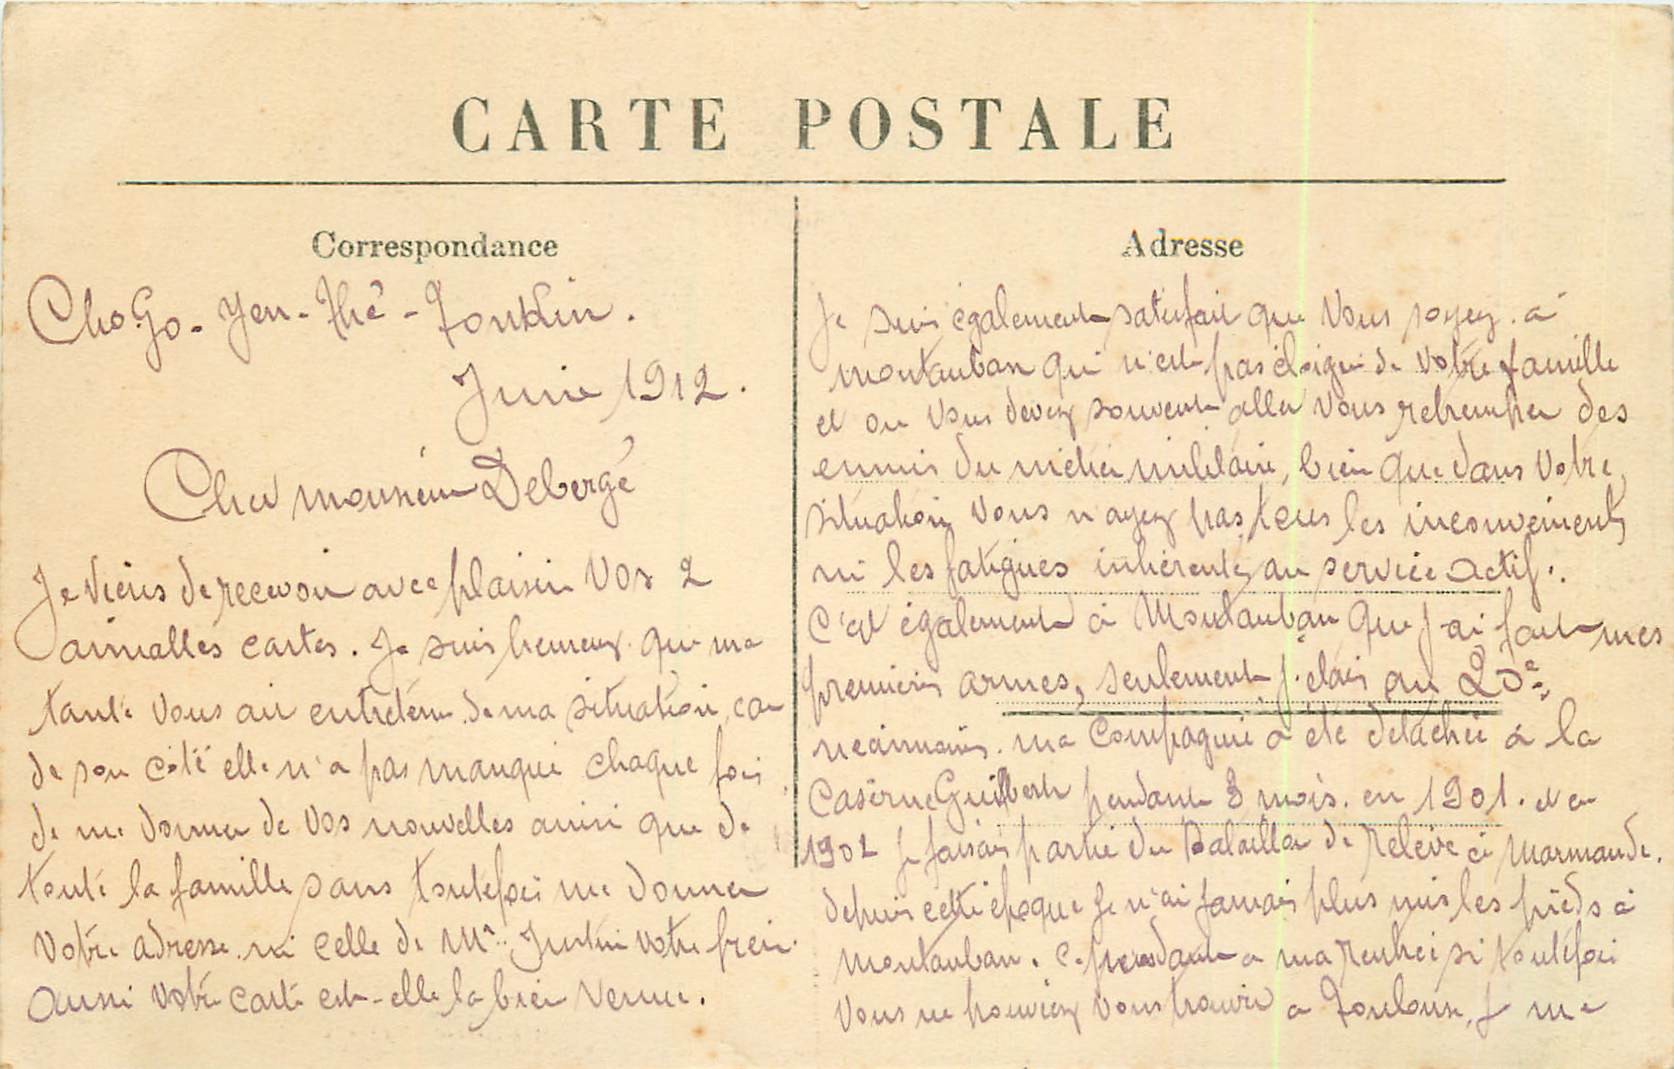 CARTE POSTALE
Correspondance
Cho-Go - Yen-Thé - Tonkin.
Juin 1912.
Cher monsieur Debergé
Je viens de recevoir avec plaisir Vos 2
aimables cartes. Je suis heureux que ma
tante vous ait entretenu de ma situation, car
de son côté elle n'a pas manqué chaque fois
de me donner de vos nouvelles ainsi que de
toute la famille sans toutefois me donner
votre adresse ni celle de Mr Justin votre frère.
Aussi votre carte est-elle la bien venue.
Adresse
Je suis également satisfait que Vous soyez à
Montauban qui n'est pas éloigné de votre famille
et où Vous devez souvent aller Vous retremper des
ennuis du métier militaire, bien que dans Votre
situation, Vous n'ayez pas tous les inconvénients
ni les fatigues inhérentes au service actif.
C'est également à Montauban que j'ai fait mes
premières armes, seulement j'étais au 20e
néanmoins ma Compagnie a été détachée à la
Caserne Guibert pendant 3 mois en 1901. et en
1902 je faisais partie du Bataillon de Relève à Marmande.
depuis cette époque je n'ai jamais plus mis les pieds à
Montauban. Cependant a ma rentrée si toutefois
Vous ne pouviez vous trouver a Toulouse, je me